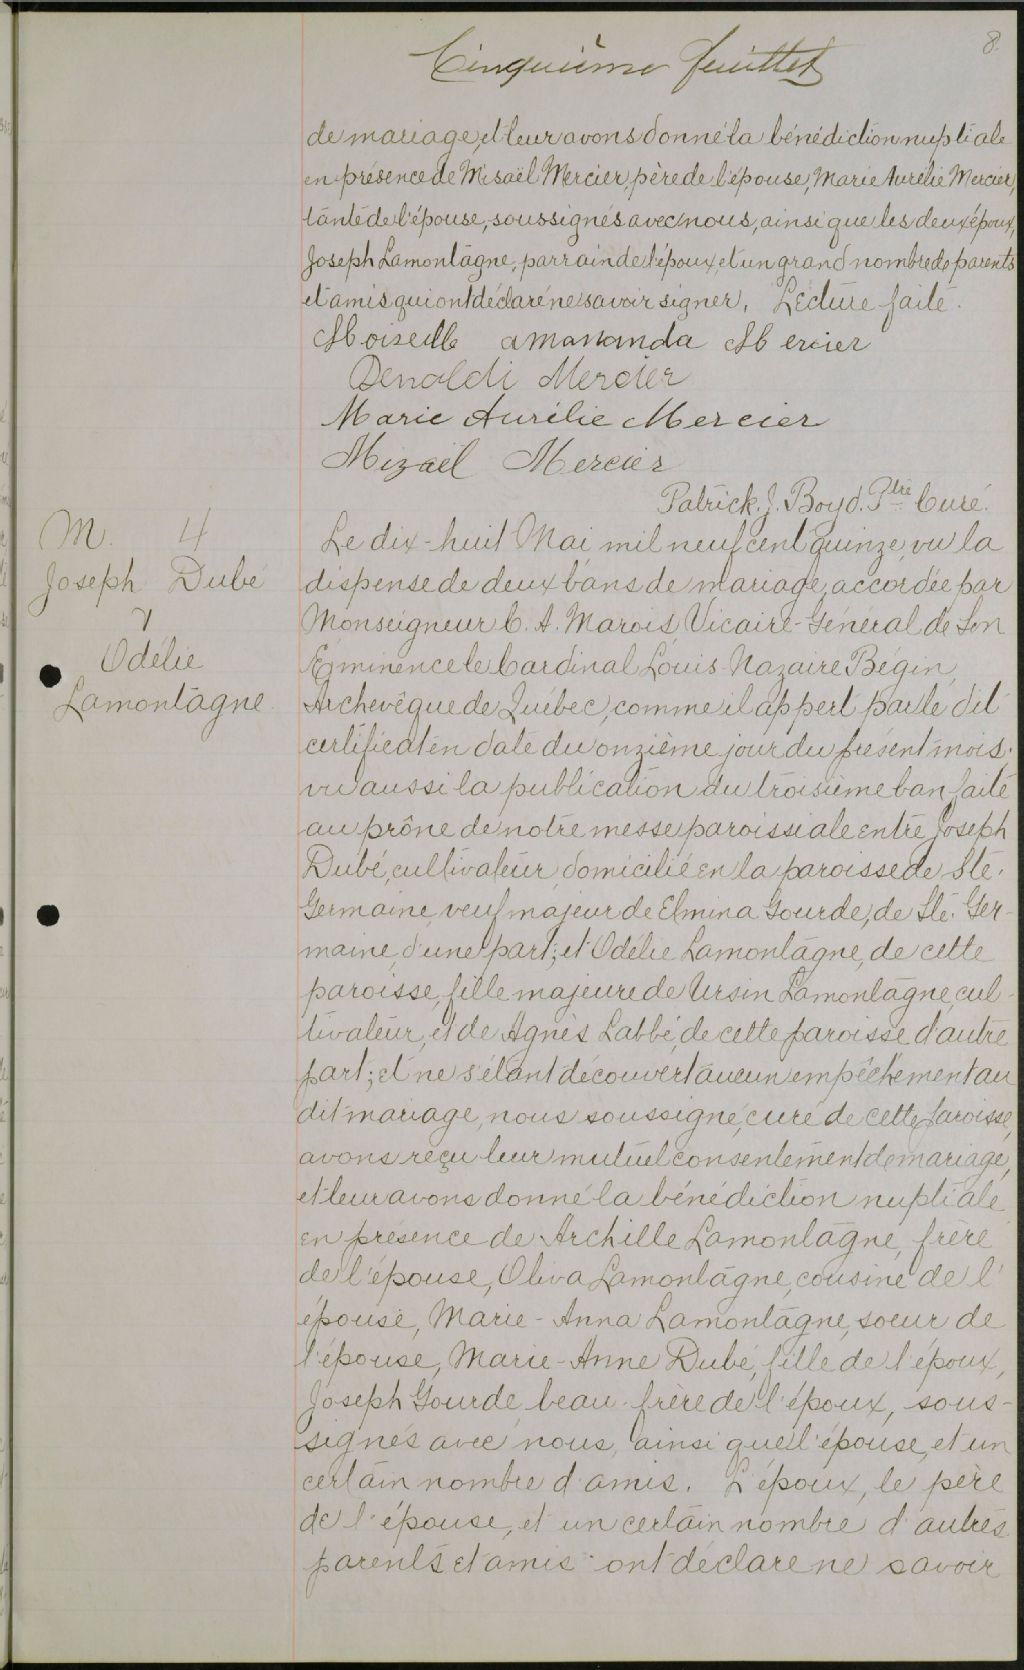 8.
Cinquième feuillet
de mariage, et leur avons donné la bénédiction nuptiale
en présence de Misaël Mercier, père de l'épouse, Marie Aurélie Mercier,
tante de l'épouse, soussignés avec nous, ainsi que les deux époux,
Joseph Lamontagne, parrain de l'époux et un grand nombre de parents
et amis qui ont déclaré ne savoir signer. Lecture faite.
Moiselle amananda Mercier
Denoldi Mercier
Marie Aurélie Mercier
Mizaël Mercier
Patrick. J. Boyd. Ptre Curé.
M. 4
Joseph Dubé
&
Odélie
Lamontagne
Le dix-huit Mai mil neuf cent quinze, vu la
dispense de deux bans de mariage, accordée par
Monseigneur C. A. Marois Vicaire-Général de Son
Éminence le Cardinal Louis-Nazaire Bégin,
Archevêque de Québec, comme il appert par le dit
certificat en date du onzième jour du présent mois;
vu aussi la publication du troisième ban faite
au prône de notre messe paroissiale entre Joseph
Dubé, cultivateur, domicilié en la paroisse de Ste.
Germaine, veuf majeur de Elmina Gourde, de Ste. Ger-
maine, d'une part; et Odélie Lamontagne, de cette
paroisse, fille majeure de Ursin Lamontagne, cul-
tivateur, et de Agnès Labbé, de cette paroisse d'autre
part; et ne s'étant découvert aucun empêchement au
dit mariage, nous soussigné, curé de cette paroisse,
avons reçu leur mutuel consentement de mariage,
et leur avons donné la bénédiction nuptiale
en présence de Archille Lamontagne, frère
de l'épouse, Oliva Lamontagne, cousine de l'
épouse, Marie-Anna Lamontagne, soeur de
l'épouse, Marie-Anne Dubé, fille de l'époux,
Joseph Gourde, beau-frère de l'époux, sous-
signés avec nous, ainsi que l'épouse, et un
certain nombre d'amis. L'époux, le père
de l'épouse, et un certain nombre d'autres
parents et amis ont déclaré ne savoir